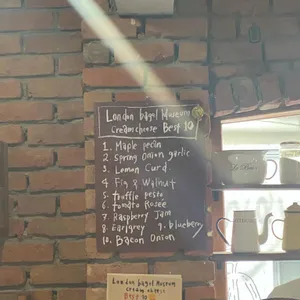 London bagel Museum
Creamcheese Best 10
1. Maple pecan
2. Spring Onion garlic
3. Lemon Curd
4. Fig & Walnut
5. truffle pesto
6. Tomato Rosée
7. Raspberry Jam
8. Earlgrey 9. blueberry
10. Bacon Onion
London bagel Museum